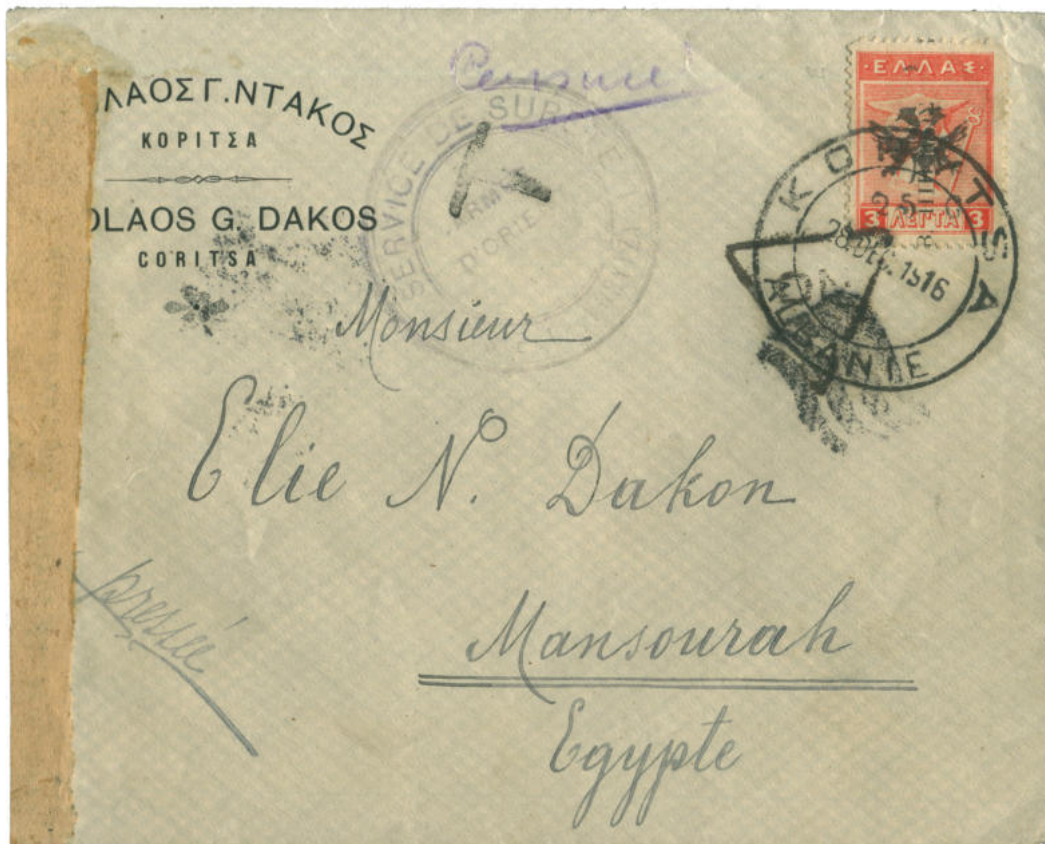 ΛΑΟΣ Γ. ΝΤΑΚΟΣ
ΚΟΡΙΤΣΑ
OLAOS G. DAKOS
CORITSA
Censure
SERVICE DE
D'ORIE
ΕΛΛΑΣ
3 ΛΕΠΤΑ 3
KORYTSA
28 DEC. 1916
ALBANIE
Monsieur
Elie N. Dakon
Mansourah
Egypte